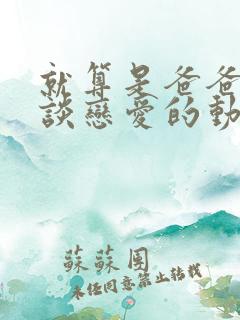 就算是爸爸
談戀愛的動
蘇蘇團
未任同意禁止轉載